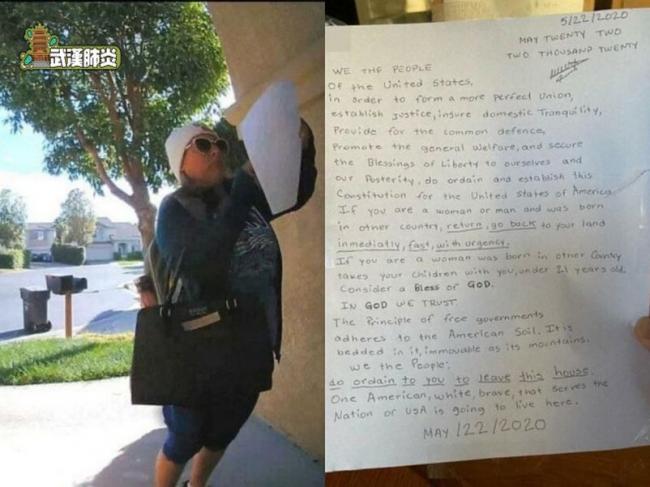 武漢肺炎
5/22/2020
MAY TWENTY TWO
TWO THOUSAND TWENTY
WE THE PEOPLE
Of the United States,
in order to form a more perfect Union,
establish justice, insure domestic Tranquility,
Provide for the common defence,
Promote the general Welfare, and secure
the Blessings of Liberty to ourselves and
our Posterity, do ordain and establish this
Constitution for the United States of America
If you are a woman or man and was born
in other country, return, go back to your land
inmediatly, fast, with urgency.
If you are a woman was born in other Country
takes your children with you, under 21 years old.
Consider a Bless of GOD.
IN GOD WE TRUST.
The Principle of free governments
adheres to the American Soil. It is
bedded in it, immovable as its mountains.
We the People:
do ordain to you to leave this house.
One American, white, brave, that serves the
Nation or USA is going to live here.
MAY /22/2020